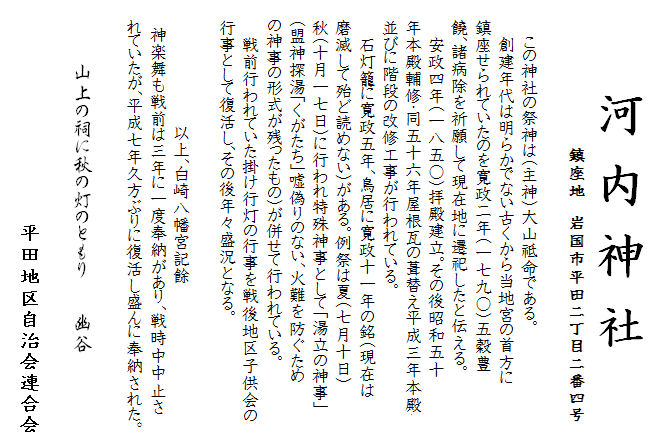 河内神社
鎮座地　岩国市平田二丁目二番四号
この神社の祭神は（主神）大山祗命である。
創建年代は明らかでない古くから当地宮の首方に
鎮座せられていたのを寛政二年（一七九〇）五穀豊
饒、諸病除を祈願して現在地に遷祀したと伝える。
安政四年（一八五〇）拝殿建立。その後昭和五十
年本殿輔修・同五十六年屋根瓦の葺替え平成三年本殿
並びに階段の改修工事が行われている。
石灯籠に寛政五年、鳥居に寛政十一年の銘（現在は
磨滅して殆ど読めない）がある。例祭は夏（七月十日）
秋（十月一七日）に行われ特殊神事として「湯立の神事」
（盟神探湯「くがたち」嘘偽りのない、火難を防ぐため
の神事の形式が残ったもの）が併せて行われている。
戦前行われていた掛け行灯の行事を戦後地区子供会の
行事として復活し、その後年々盛況となる。
以上、白崎八幡宮記餘
神楽舞も戦前は三年に一度奉納があり、戦時中中止さ
れていたが、平成七年久方ぶりに復活し盛んに奉納された。
山上の祠に秋の灯のともり　幽谷
平田地区自治会連合会